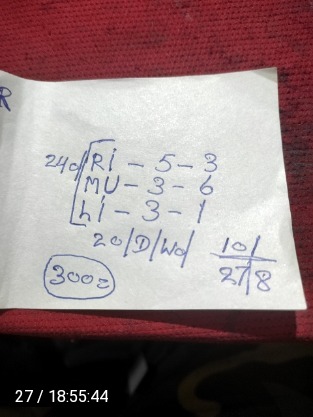 R
240 [RI - 5 - 3
MU - 3 - 6
LI - 3 - 1
20/D/Wd 10/
27/8
300=
27 / 18:55:44